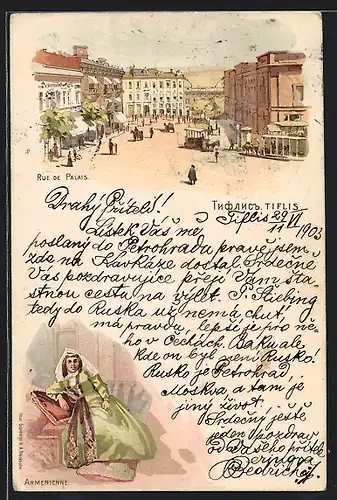 RUE DE PALAIS.
ТИФЛИСЪ. TIFLIS
Drahý Příteli!
Tiflis 29/VI
11 1903
Lístek Váš mě,
poslaný do Petrohradu právě jsem
zde na Kavkáze dostal. Srdečně
Vás pozdravujíce přejí Vám šťa-
stnou cestu na výlet. P. Stübing
tedy do Ruska už nemá chuť,
má pravdu, lepší je pro ně-
ho v Čechách. Baku ale
kde on byl není Rusko!
Rusko je Petrohrad
Moskva a tam je
jiný život.
Srdečný ještě
jeden pozdrav
od Vašeho přítele
Bedřich
ARMENIENNE